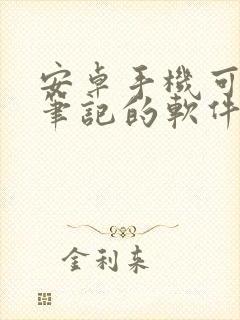 安卓手機可
筆記的軟件
金利来